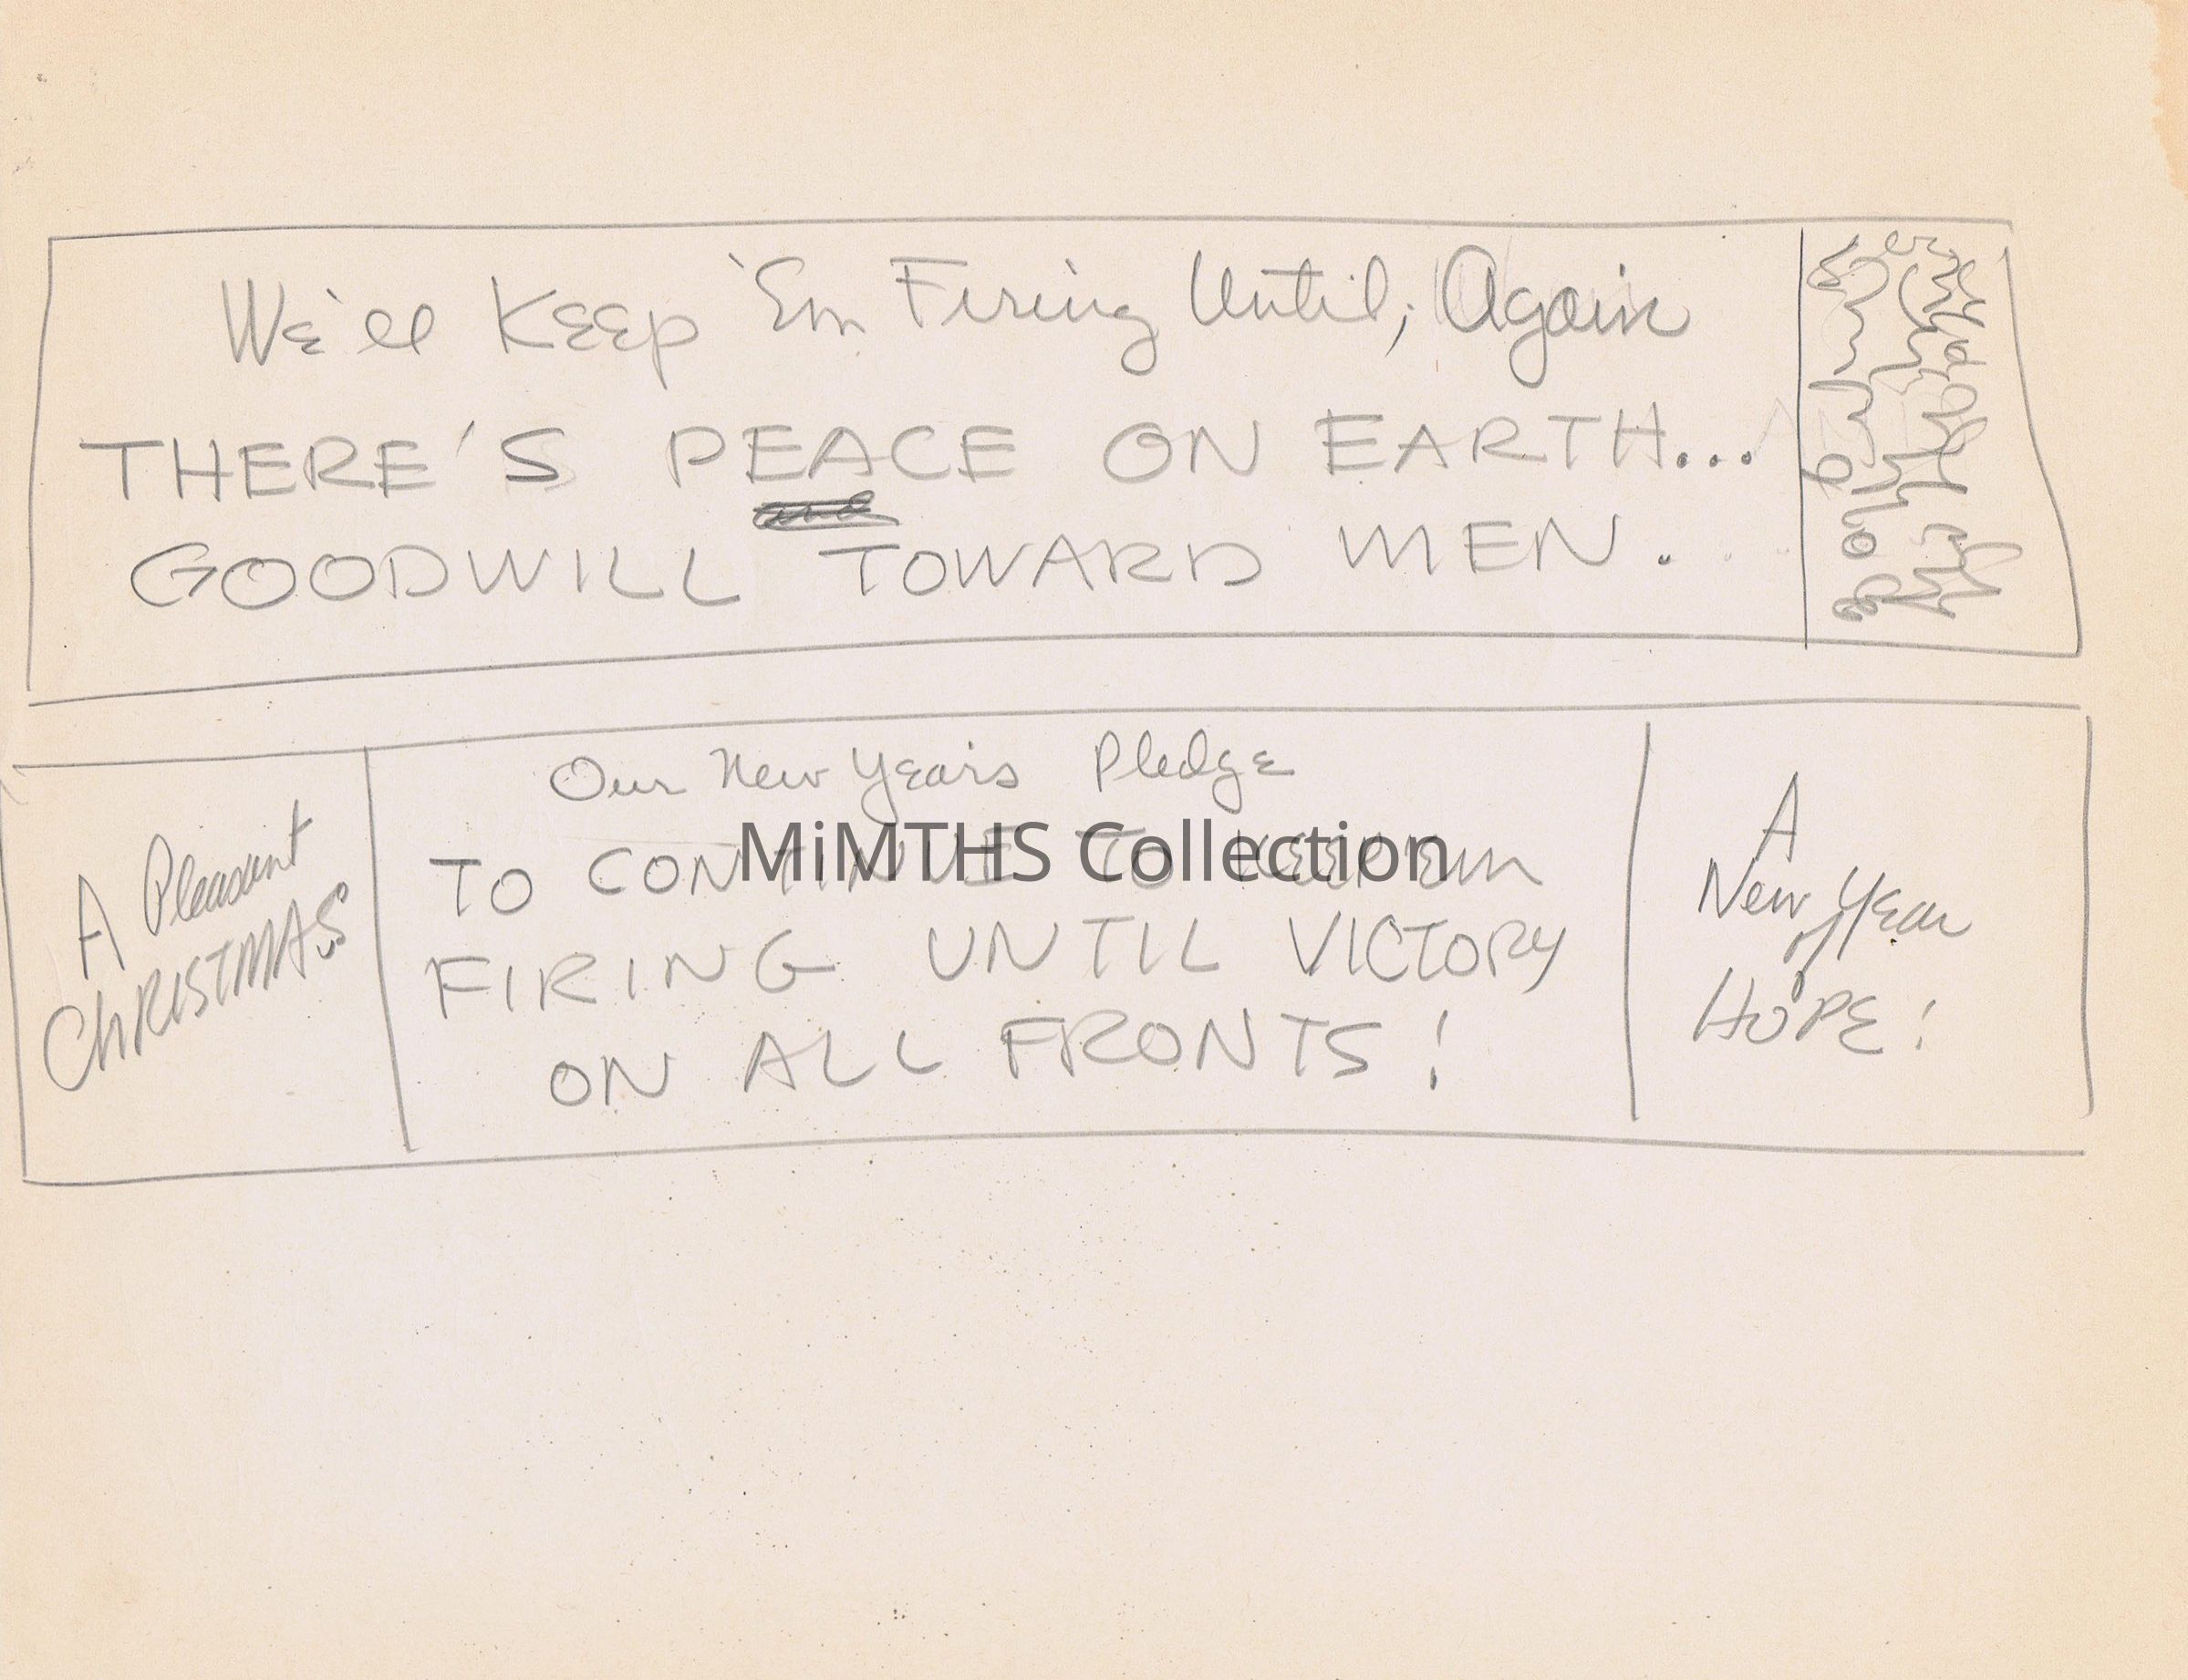 We'll Keep 'Em Firing Until, Again
THERE'S PEACE ON EARTH...
and
GOODWILL TOWARD MEN.
Our New Years Pledge
TO CONTINUE TO KEEP 'Em
FIRING UNTIL VICTORY
ON ALL FRONTS!
A Pleasant
CHRISTMAS
A
New Year
of
HOPE!
MiMTHS Collection